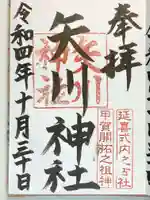 奉拝
延喜式内之古社
甲賀開拓之祖神
矢川神社
令和四年十月三十日